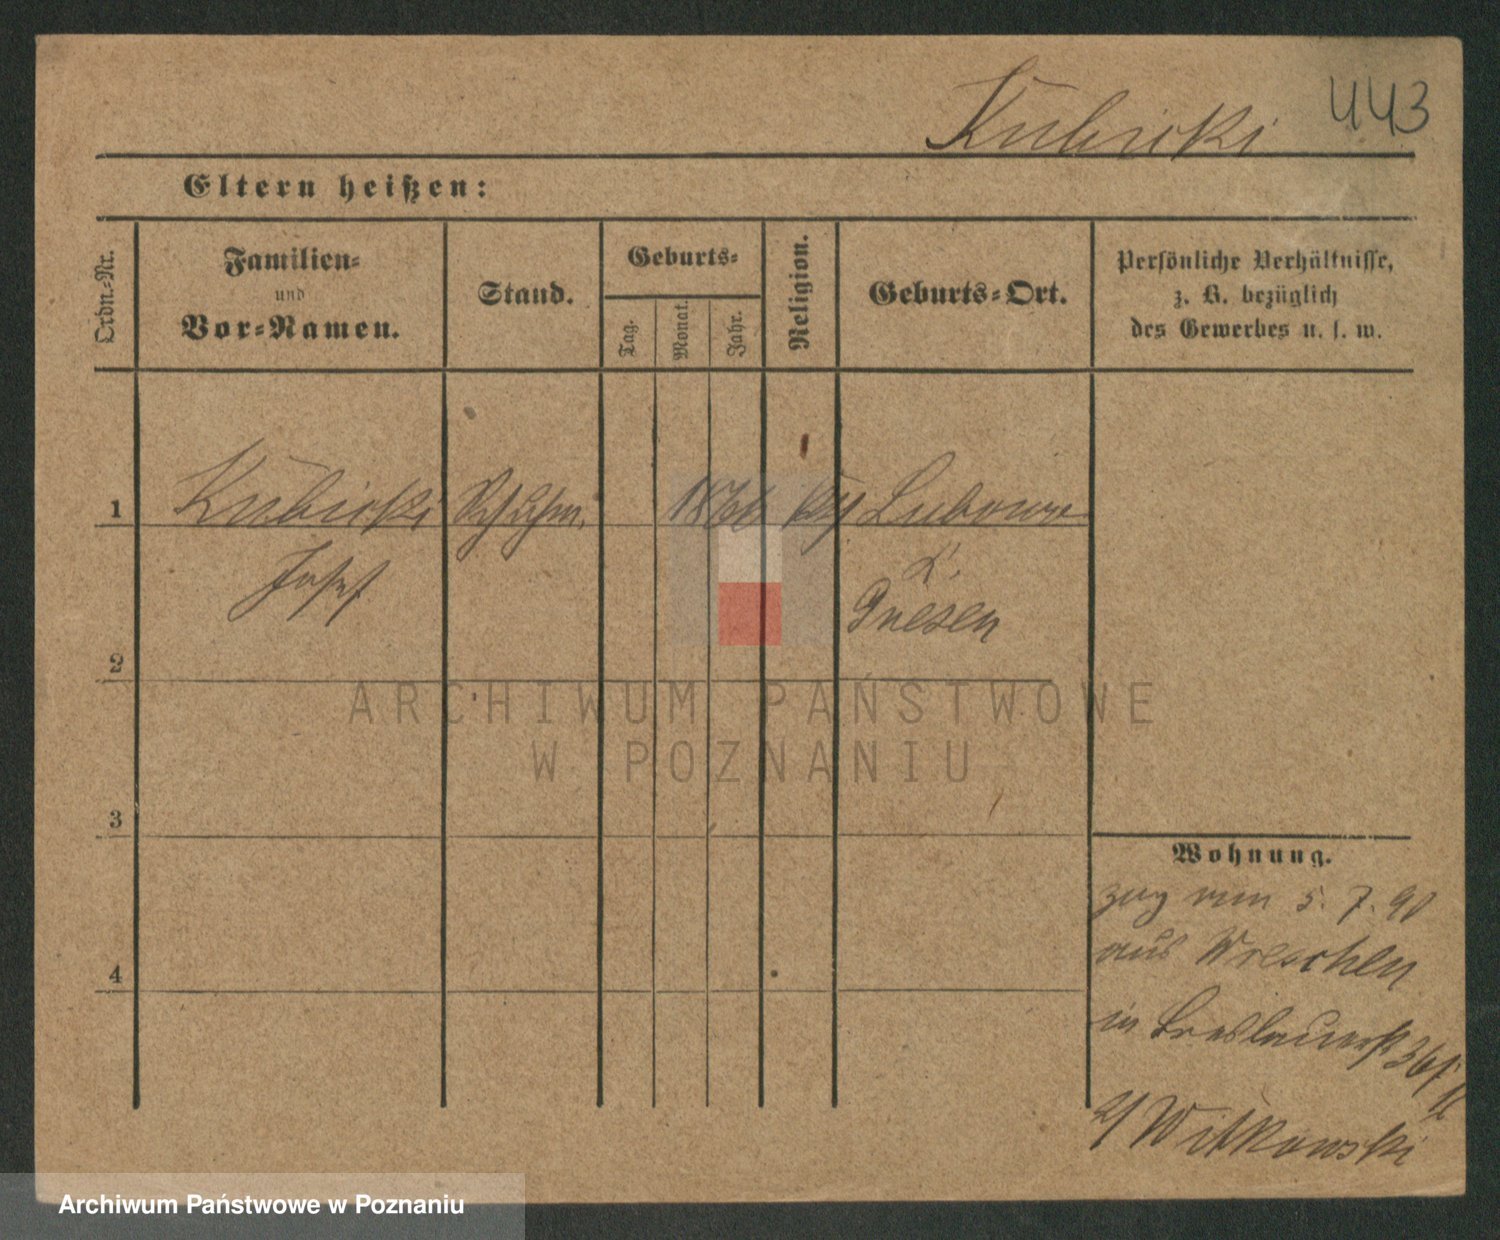 Kubicki 443
Eltern heißen:
Ordn.-Nr.
Familien-
und
Vor-Namen.
Stand.
Geburts-
Tag.
Monat.
Jahr.
Religion.
Geburts-Ort.
Persönliche Verhältnisse,
z. B. bezüglich
des Gewerbes u. s. w.
1 Kubicki Schuhm. 1866 Lubowo
Josef
Gnesen
2
3
4
Wohnung.
zug vom 5. 7. 90
aus Wreschen
in Breslauerst 36
Witkowski
ARCHIWUM PAŃSTWOWE
W POZNANIU
Archiwum Państwowe w Poznaniu